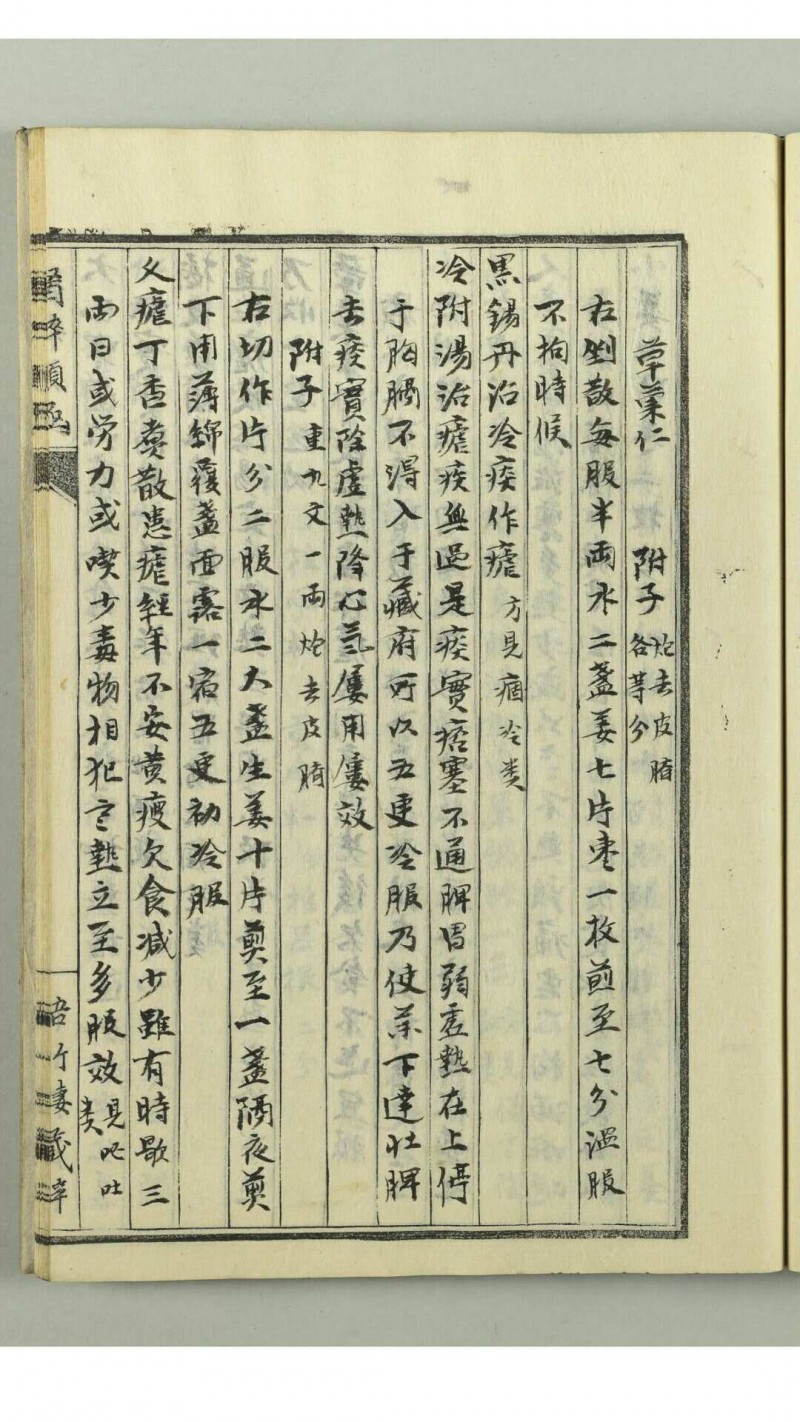 草菓仁 附子 炮去皮臍 各等分
右剉散每服半両水二盞姜七片枣一枚煎至七分温服
不拘時候
黒錫丹治冷痰作瘧 方見痼冷类
冷附湯治瘧疾無過是痰實痞塞不通脾胃弱虚熱在上停
于胸膈不得入于藏府所以五更冷服乃使藥下達壮脾
去痰實除虚熱降心氣屡用屡效
附子 重九文一両炮去皮臍
右切作片分二服水二大盞生姜十片煎至一盞隔夜煎
下用薄綿覆盞面露一宿五更初冷服
又瘧丁香煮散患瘧経年不安黄瘦欠食减少雖有時歇三
両日或労力或喫少毒物相犯寒熱立至多服效 見呕吐类
竹 藏